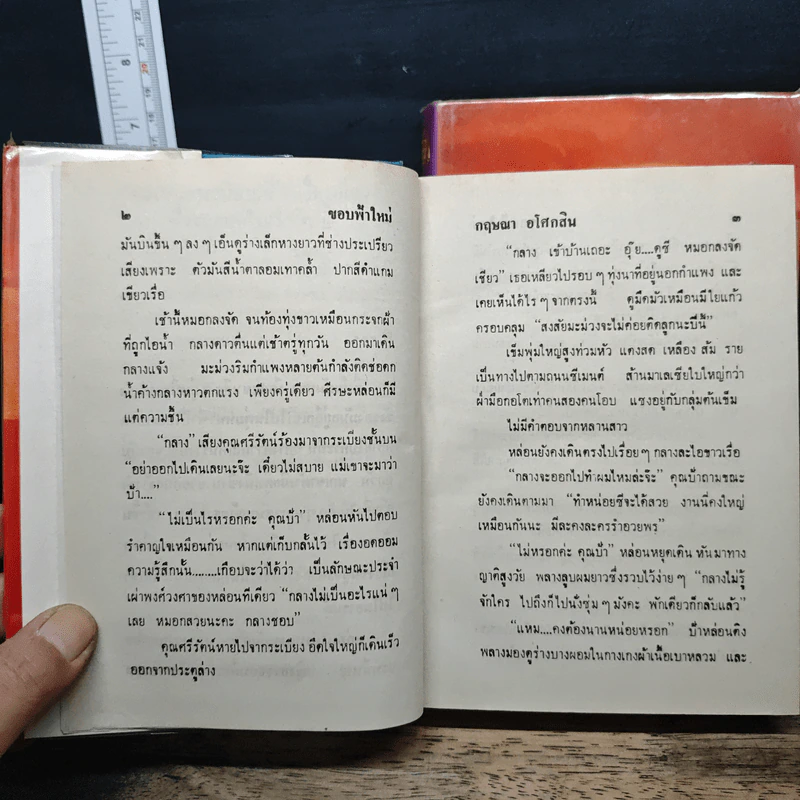 8
7
๒ ขอบฟ้าใหม่
มันบินขึ้น ๆ ลง ๆ เอ็นดูร่างเล็กหางยาวที่ช่างประเปรียว
เสียงเพราะ ตัวมันสีน้ำตาลอมเทาคล้ำ ปากสีดำแกม
เขียวเรื่อ
เช้านี้หมอกลงจัด จนท้องทุ่งขาวเหมือนกระจกฝ้า
ที่ถูกไอน้ำ กลางดาวตื่นแต่เช้าตรู่ทุกวัน ออกมาเดิน
กลางแจ้ง มะม่วงริมกำแพงหลายต้นกำลังติดช่อดก
น้ำค้างกลางหาวตกแรง เพียงครู่เดียว ศีรษะหล่อนก็มี
แต่ความชื้น
“กลาง” เสียงคุณศรีรัตน์ร้องมาจากระเบียงชั้นบน
“อย่าออกไปเดินเลยนะจ๊ะ เดี๋ยวไม่สบาย แม่เขาจะมาว่า
ป้า....”
“ไม่เป็นไรหรอกค่ะ คุณป้า” หล่อนหันไปตอบ
รำคาญใจเหมือนกัน หากแต่เก็บกลั้นไว้ เรื่องอดออม
ความรู้สึกนั้น........เกือบจะว่าได้ว่า เป็นลักษณะประจำ
เผ่าพงศ์วงศาของหล่อนทีเดียว “กลางไม่เป็นอะไรแน่ ๆ
เลย หมอกสวยนะคะ กลางชอบ”
คุณศรีรัตน์หายไปจากระเบียง อึดใจใหญ่ก็เดินเร็ว
ออกจากประตูล่าง
กฤษณา อโศกสิน ๓
“กลาง เข้าบ้านเถอะ อุ๊ย....ดูซี หมอกลงจัด
เชียว” เธอเหลียวไปรอบ ๆ ทุ่งนาที่อยู่นอกกำแพง และ
เคยเห็นได้ไร ๆ จากตรงนี้ ดูมืดมัวเหมือนมีใยแก้ว
ครอบคลุม “สงสัยมะม่วงจะไม่ค่อยติดลูกนะปีนี้”
เข็มพุ่มใหญ่สูงท่วมหัว แดงสด เหลือง ส้ม ราย
เป็นทางไปตามถนนซีเมนต์ ส้านมาเลเซียใบใหญ่กว่า
ฝ่ามือกอโตเท่าคนสองคนโอบ แซงอยู่กับกลุ่มต้นเข็ม
ไม่มีคำตอบจากหลานสาว
หล่อนยังคงเดินตรงไปเรื่อยๆ กลางละไอขาวเรื่อ
“กลางจะออกไปทำผมไหมล่ะจ๊ะ” คุณป้าถามขณะ
ยังคงเดินตามมา “ทำหน่อยซีจะได้สวย งานนี้คงใหญ่
เหมือนกันนะ มีละคงละครรำอวยพร”
“ไม่หรอกค่ะ คุณป้า” หล่อนหยุดเดิน หันมาทาง
ญาติสูงวัย พลางลูบผมยาวซึ่งรวบไว้ง่าย ๆ “กลางไม่รู้
จักใคร ไปถึงก็ไปนั่งซุ่ม ๆ มังคะ พักเดียวก็กลับแล้ว”
“แหม....คงต้องนานหน่อยหรอก” ป้าหล่อนติง
พลางมองดูร่างบางผอมในกางเกงผ้าเนื้อเบาหลวม และ